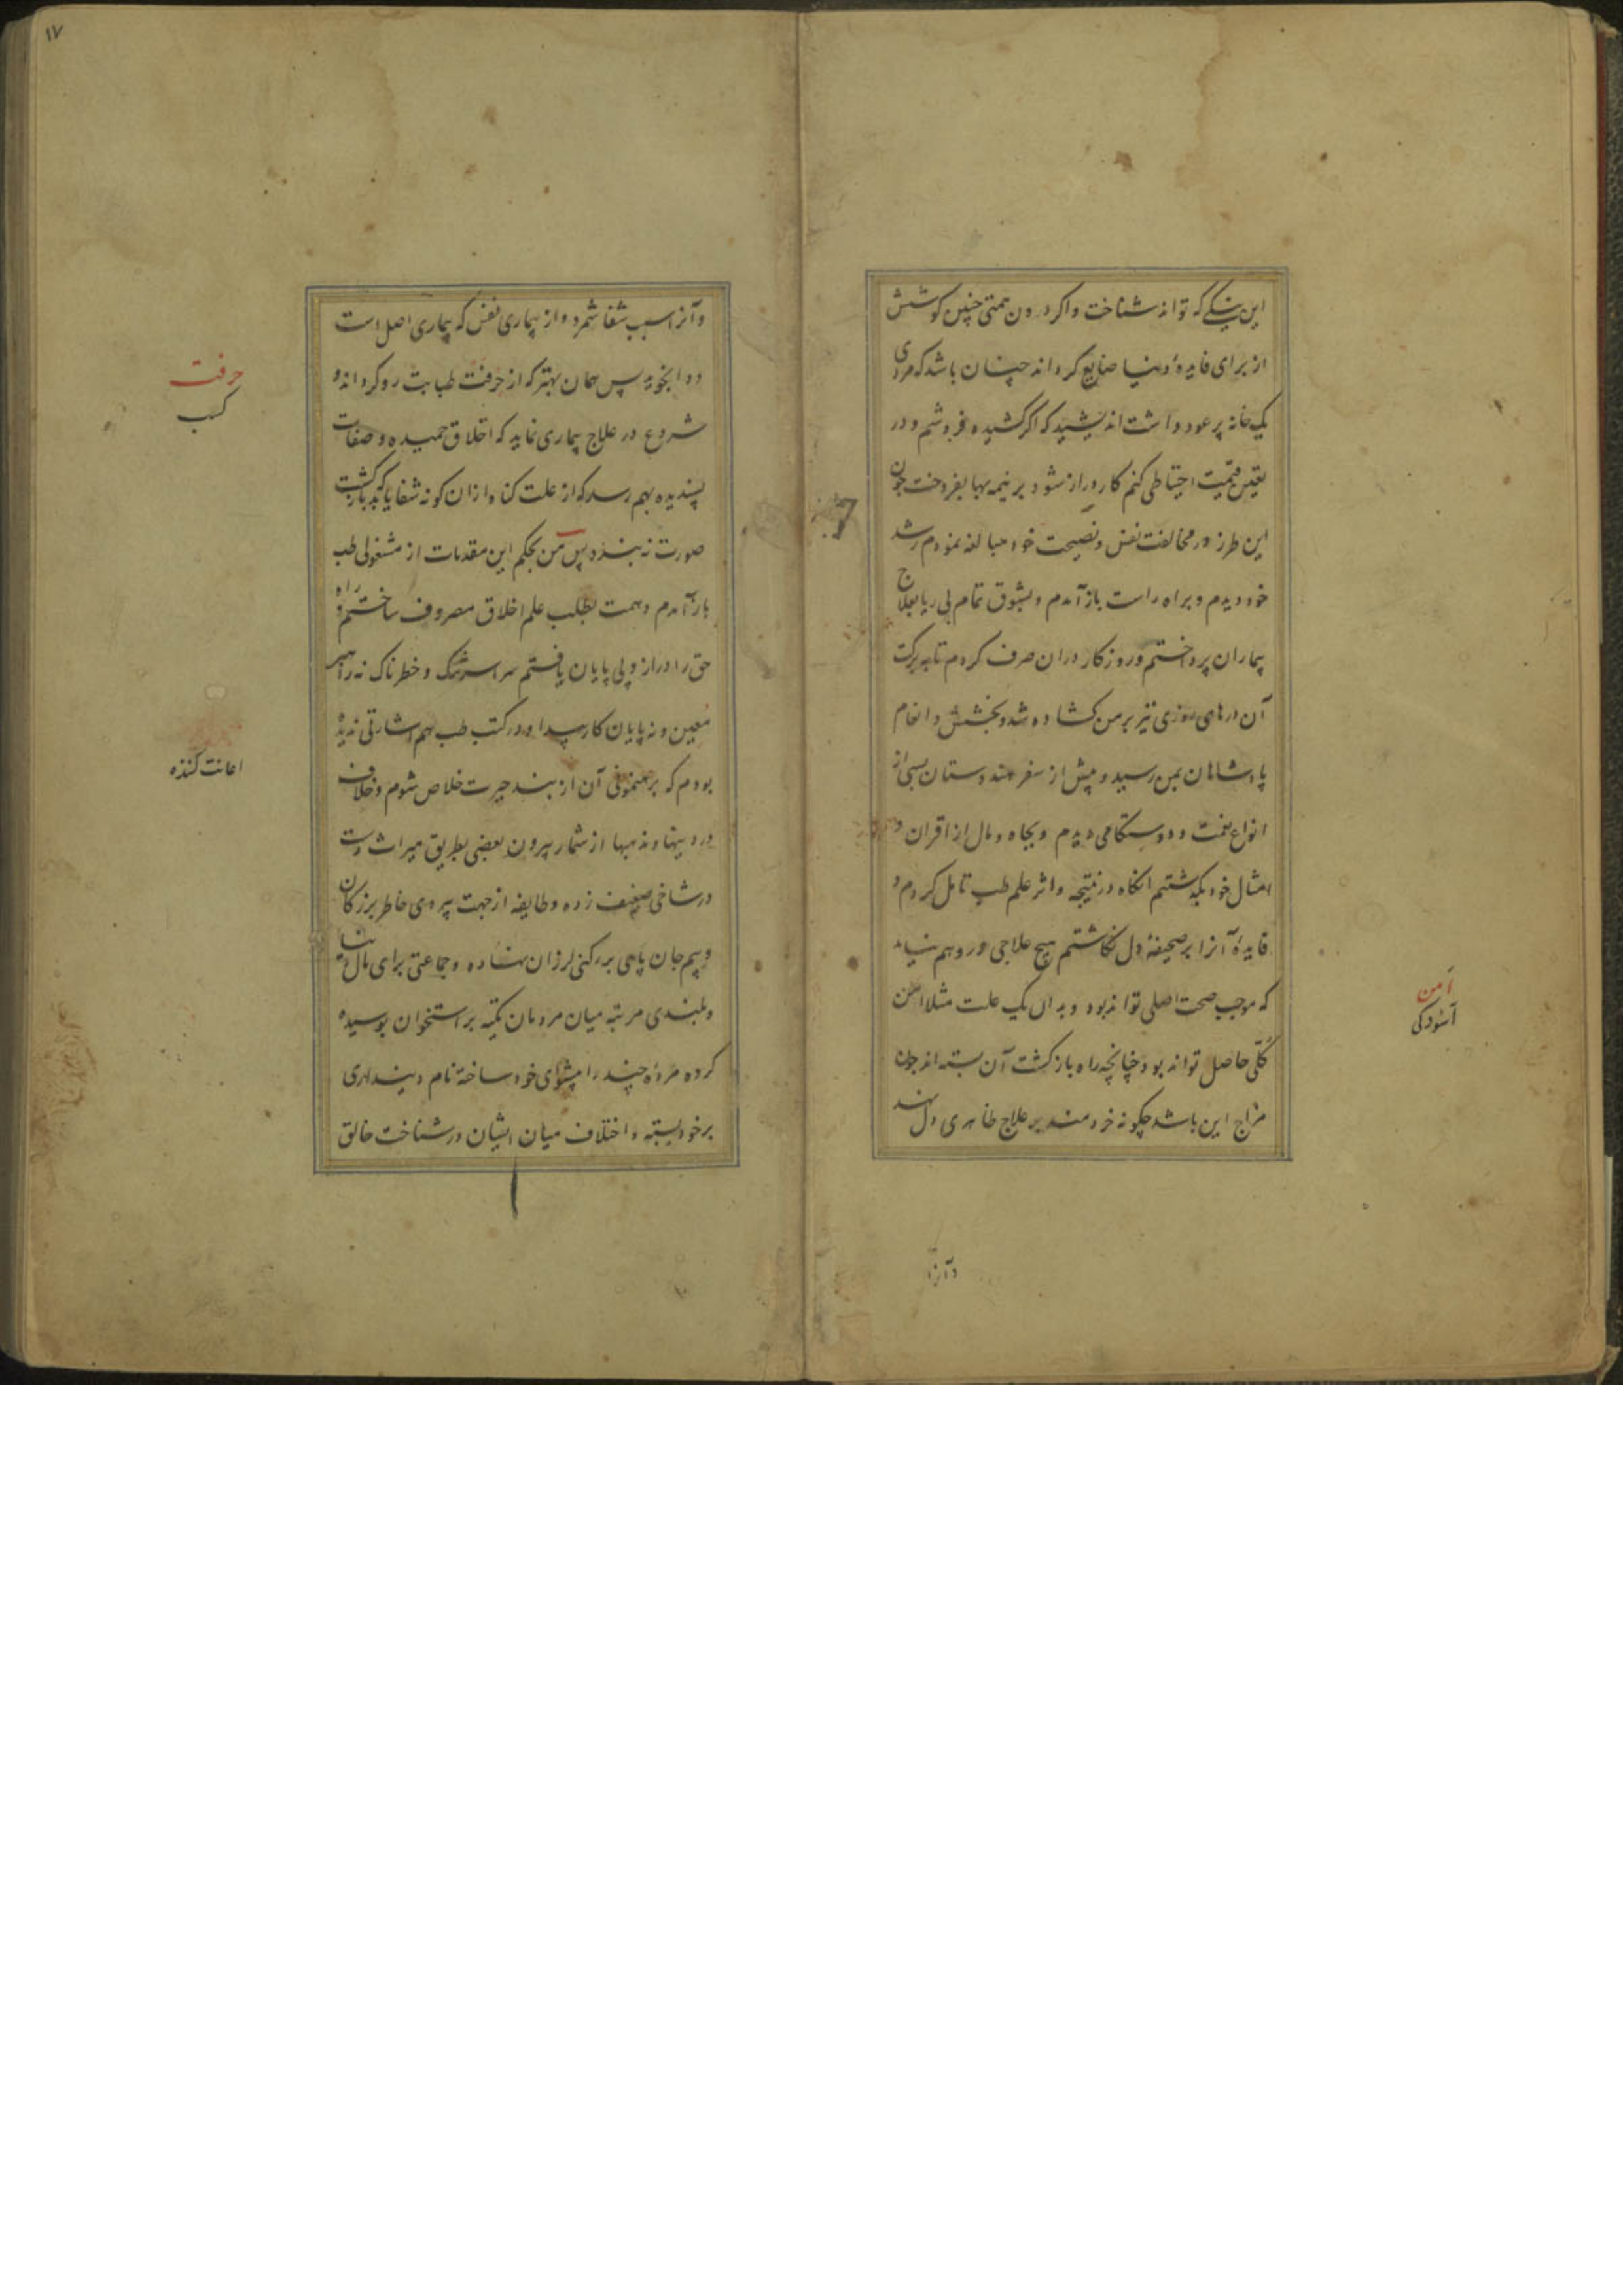 این نیکی که تواند شناخت و اکر دون همتی چنین کوشش
از برای فایدهٔ دنیا ضایع کرداند چنان باشد که مردی
یک خانه پر عود داشت اندیشید که اکر کشیده فروشم و در
تعیین قیمت احتیاطی کنم کار دراز شود بر نیمه بها بفروخت چون
این طرز در مخالفت نفس و نصیحت خود مبالغه نمودم رشد
خود دیدم و براه راست باز آمدم و بشوق تمام بی ریا بعلاج
بیماران پرداختم و روزکار دران صرف کردم تا به برکت
آن درهای روزی نیز بر من کشاده شد و بخشش و انعام
پادشاهان بمن رسید و پیش از سفر هندوستان بسی از
انواع نعمت و دوستکامی دیدم و بجاه و مال از اقران و
امثال خود بکذشتم انکاه در نتیجه و اثر علم طب تامل کردم و
فایدهٔ آنرا بر صحیفهٔ دل نکاشتم هیچ علاجی در وهم نیامد
که موجب صحت اصلی تواند بود و بدان یک علت مثلا امن
کلّی حاصل تواند بود چنانچه راه بازکشت آن بسته اند چون
مزاج این باشد چکونه خردمند بر علاج ظاهری دل نهد
امن
آسودکی
وآنرا
۱۷
وآنرا سبب شفا شمرد و از بیماری نفس که بیماری اصل است
دوا نجوید پس همان بهتر که از حرفت طبابت رو کرداند و
شروع در علاج بیماری نماید که اخلاق حمیده و صفات
پسندیده بهم رسد که از علت کناه ازان کونه شفا یابد که بازکشت
صورت نه بندد پس من بحکم این مقدمات از مشغولی طب
باز آمدم و همت بطلب علم اخلاق مصروف ساختم و راه
حق را دراز و بی پایان یافتم سراسر سنک و خطرناک نه راهبر
معین و نه پایان کار پیدا و در کتب طب هم اشارتی ندیده
بودم که برهنمونی آن از بند حیرت خلاص شوم و خلاف
در دینها و مذهبها از شمار بیرون بعضی بطریق میراث دست
در شاخی ضعیف زده و طایفه از جهت پیروی خاطر بزرکان
و بیم جان پای بر رکنی لرزان نهاده و جماعتی برای مال دنیا
و بلندی مرتبه میان مردمان تکیه بر استخوان بوسیده
کرده مردهٔ چند را پیشوای خود ساخته نام دینداری
بر خود بسته و اختلاف میان ایشان در شناخت خالق
حرفت
کسب
اعانت کننده